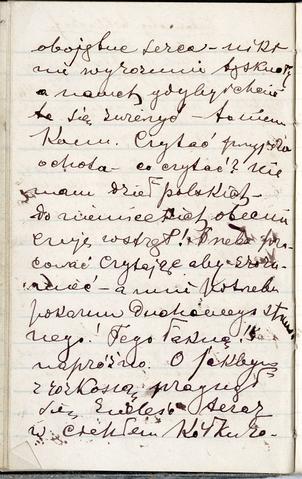 obojętne serca – nikt
nie wyrozumie tęsknoty
a nawet gdybyś chciał
to się zwierzyć – to niema
Komu. Czytać przyszła
ochota – co czytać? nie
mam dzieł polskich –
do niemieckich obecnie
czuję wstręt! Trzeba pra
cować czytając aby zrozu
mieć – a mnie potrzeba
pokarmu Duchowego straw
nego! Tego łaknę!
napróżno. O jakbym
z rozkoszą pragnęł
się teraz
w ciepłem